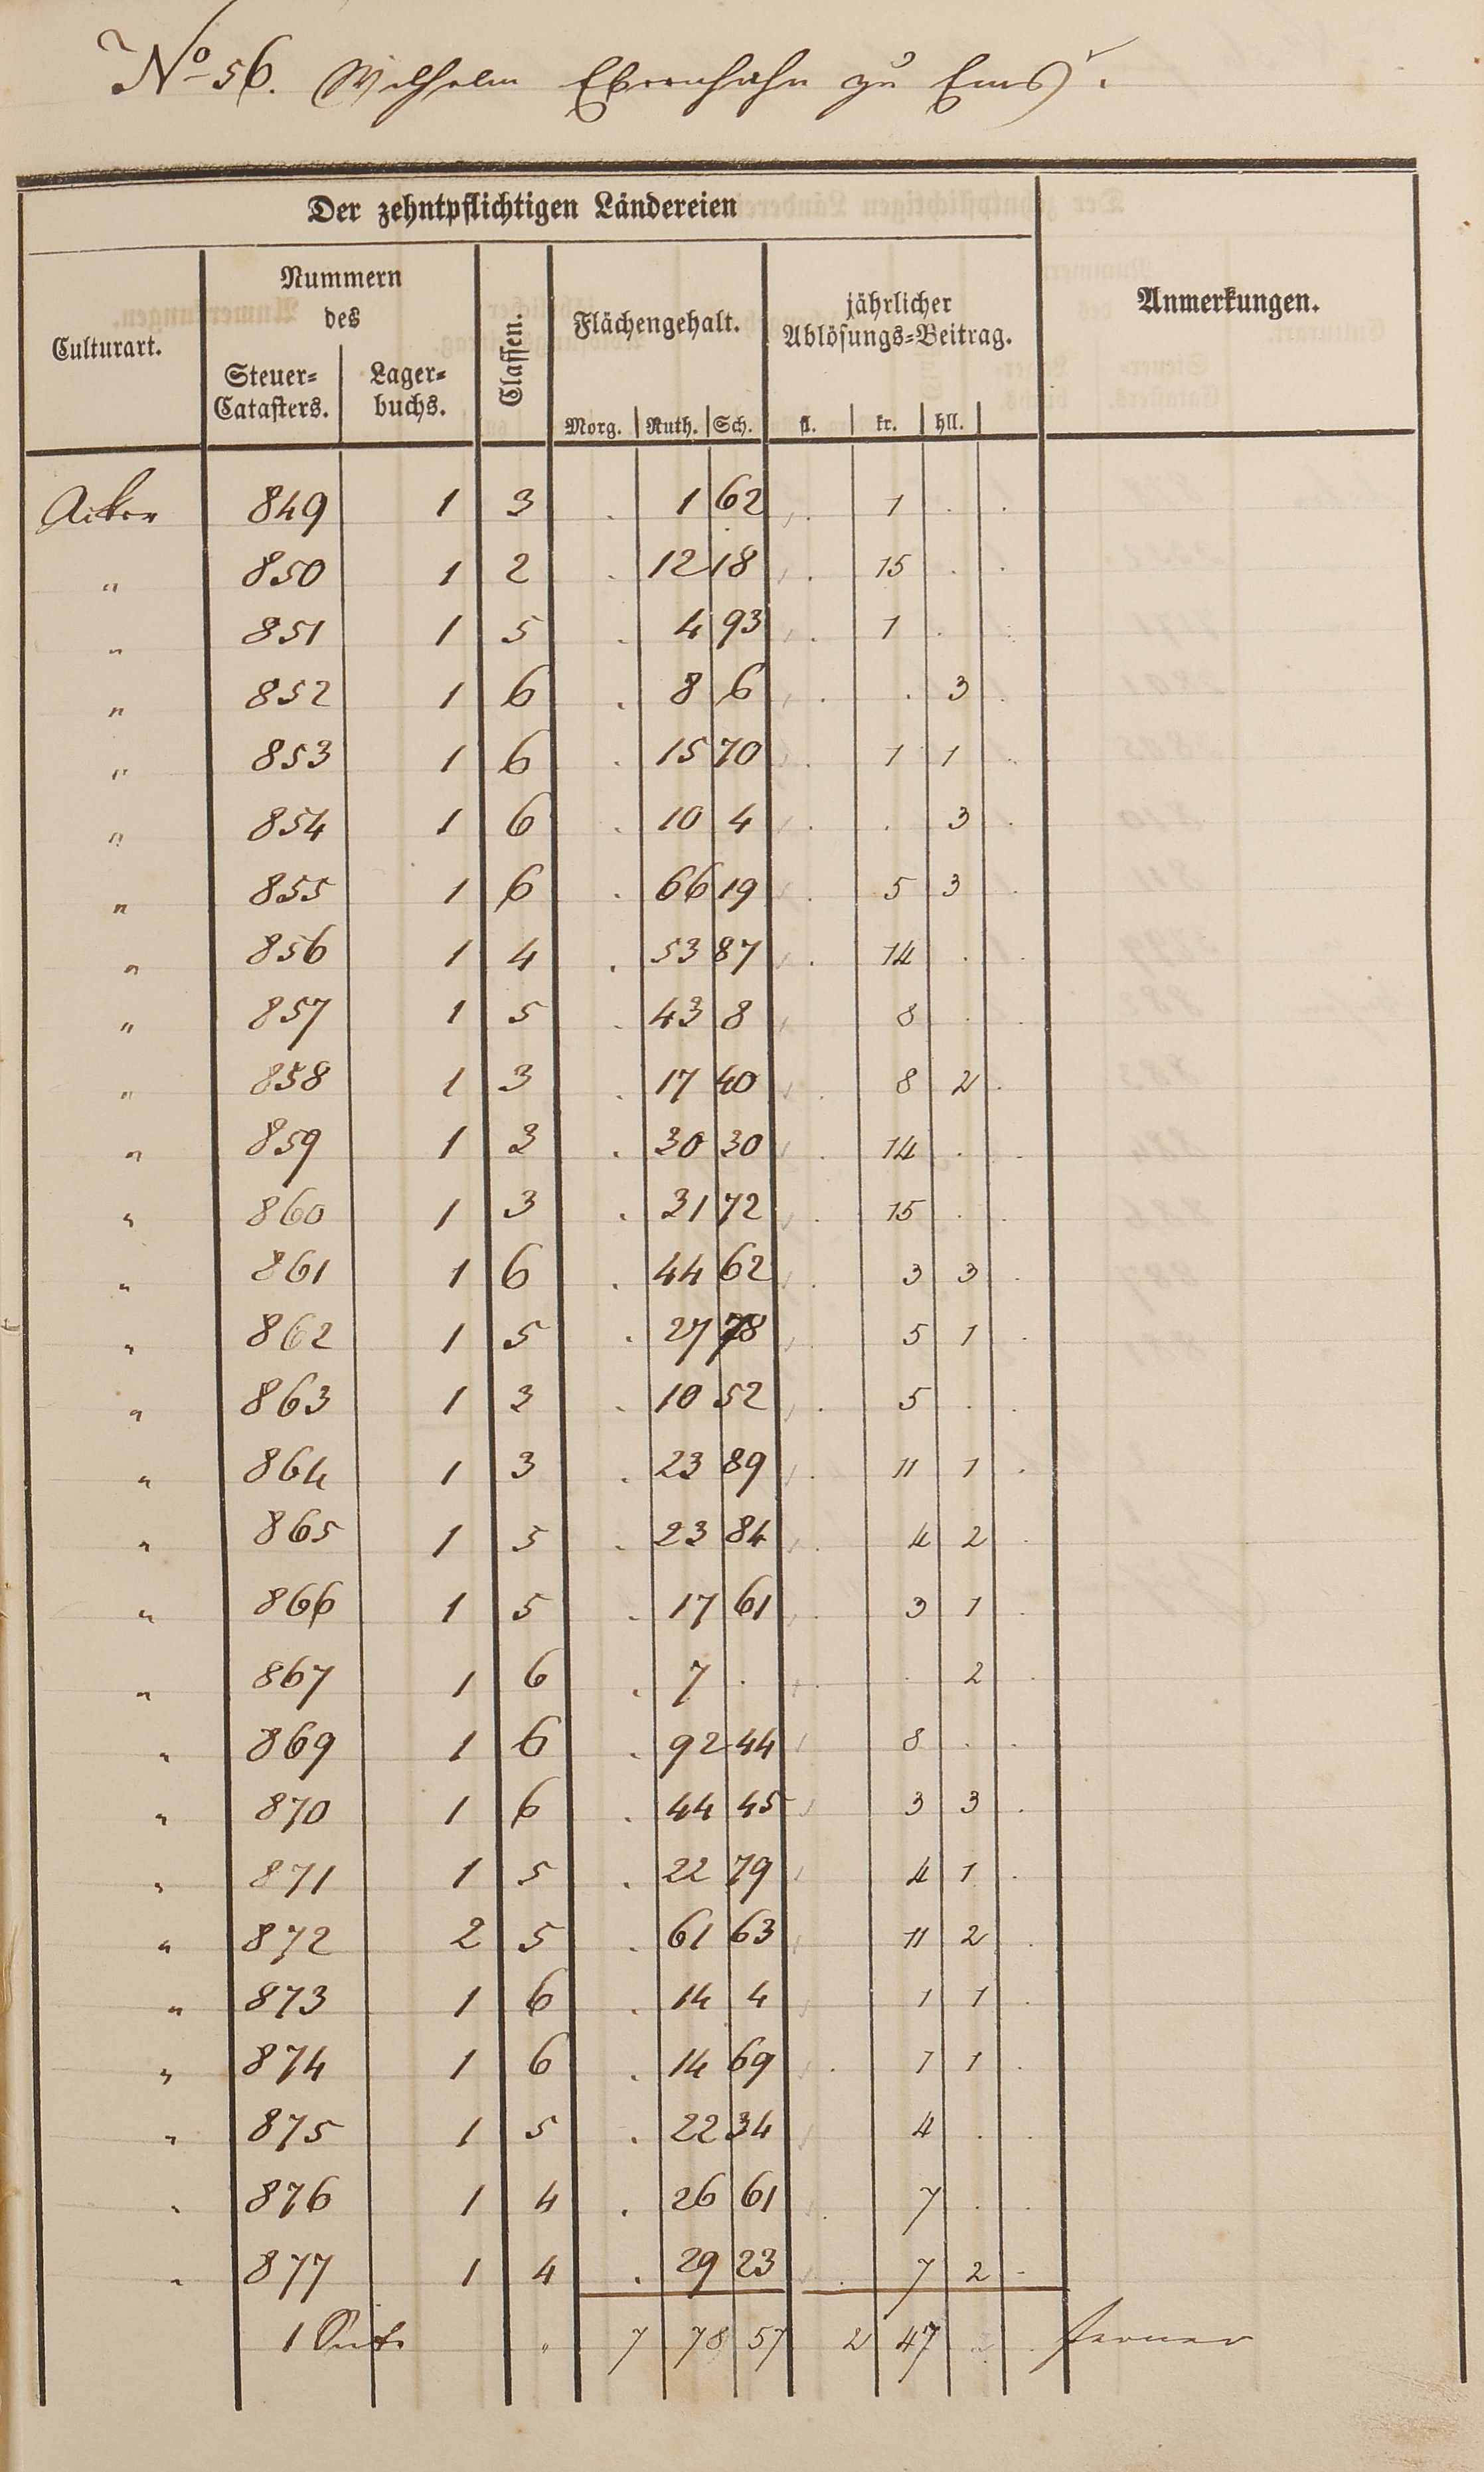 No 56. Wilhelm Ebernhahn zu Ems.
Der zehntpflichtigen Ländereien
Culturart. Nummern des Classen. Flächengehalt. jährlicher Ablösungs=Beitrag. Anmerkungen.
Steuer=Catasters. Lager=buchs. Morg. Ruth. Sch. fl. kr. hll.
Acker 849 1 3 . 1 62 . 1 . .
" 850 1 2 . 12 18 . 15 . .
" 851 1 5 . 4 93 . 1 . .
" 852 1 6 . 8 6 . . 3 .
" 853 1 6 . 15 70 . 1 1 .
" 854 1 6 . 10 4 . . 3 .
" 855 1 6 . 66 19 . 5 3 .
" 856 1 4 . 53 87 . 14 . .
" 857 1 5 . 43 8 8 . .
" 858 1 3 . 17 40 . 8 2 .
" 859 1 3 . 30 30 . 14 . .
" 860 1 3 . 31 72 . 15 . .
" 861 1 6 . 44 62 . 3 3 .
" 862 1 5 . 27 78 . 5 1 .
" 863 1 3 . 10 52 . 5 . .
" 864 1 3 . 23 89 . 11 1 .
" 865 1 5 . 23 84 . 4 2 .
" 866 1 5 . 17 61 . 3 1 .
" 867 1 6 . 7 . . . 2 .
" 869 1 6 . 92 44 8 . .
" 870 1 6 . 44 45 3 3 .
" 871 1 5 . 22 79 4 1 .
" 872 2 5 . 61 63 11 2 .
" 873 1 6 . 14 4 1 1 .
" 874 1 6 . 14 69 . 1 1 .
" 875 1 5 . 22 34 4 . .
" 876 1 4 . 26 61 . 7 . .
" 877 1 4 . 29 23 . 7 2 .
1 Seite " 7 78 57 2 47 2 . ferner